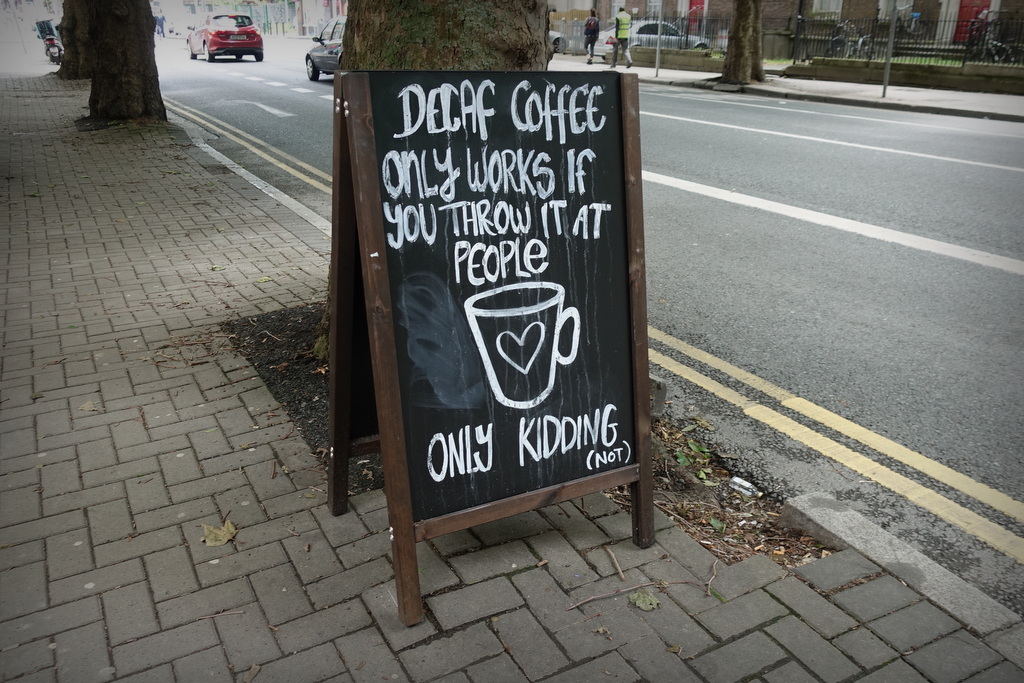 DECAF COFFEE
ONLY WORKS IF
YOU THROW IT AT
PEOPLE
ONLY KIDDING
(NOT)